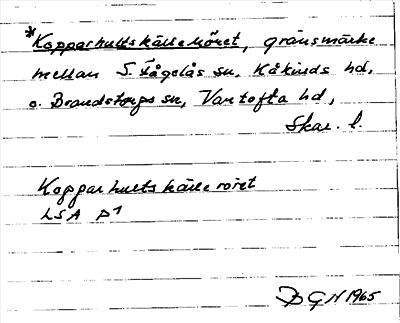 *Kopparhultskälleröret, gränsmärke
mellan S. Fågelås sn, Kåkinds hd,
o. Brandstorps sn, Vartofta hd,
Skar. l.
Kopparhultskälleröret
LSA P1
GN 1965